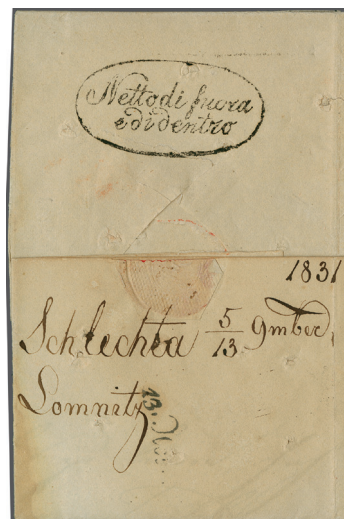 Netto di fuora
e di dentro
1831
Schlechta 5/13 9mber
Lomnitz
13.